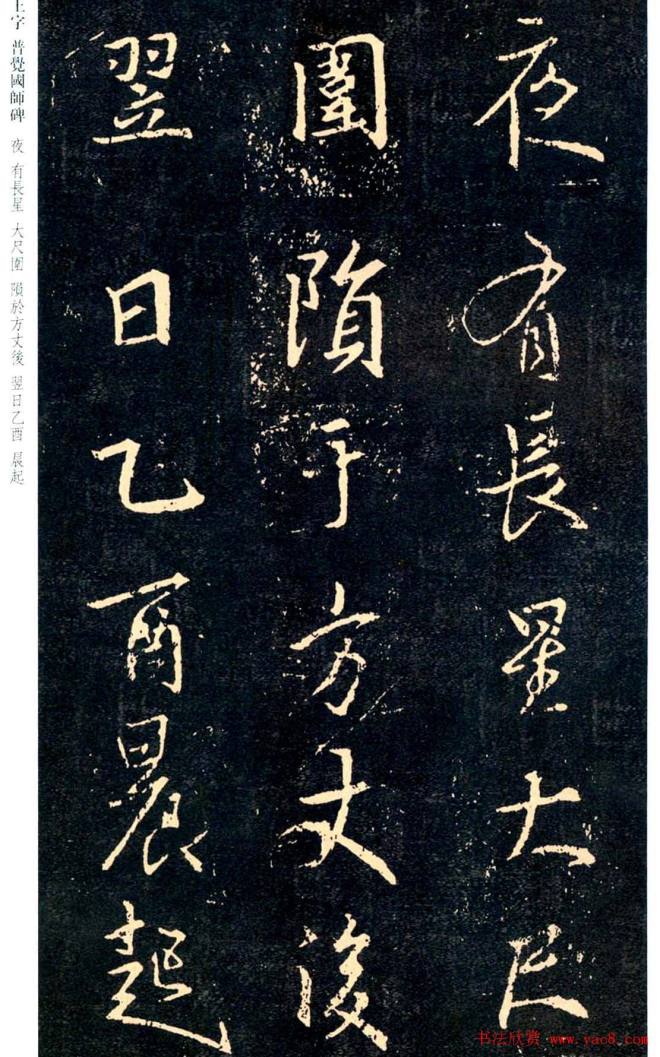 夜有長星大尺
圍隕于方丈後
翌日乙酉晨起
王字 普覺國師碑 夜 有長星 大尺圍 隕於方丈後 翌日乙酉 晨起
书法欣赏 www.yac8.com